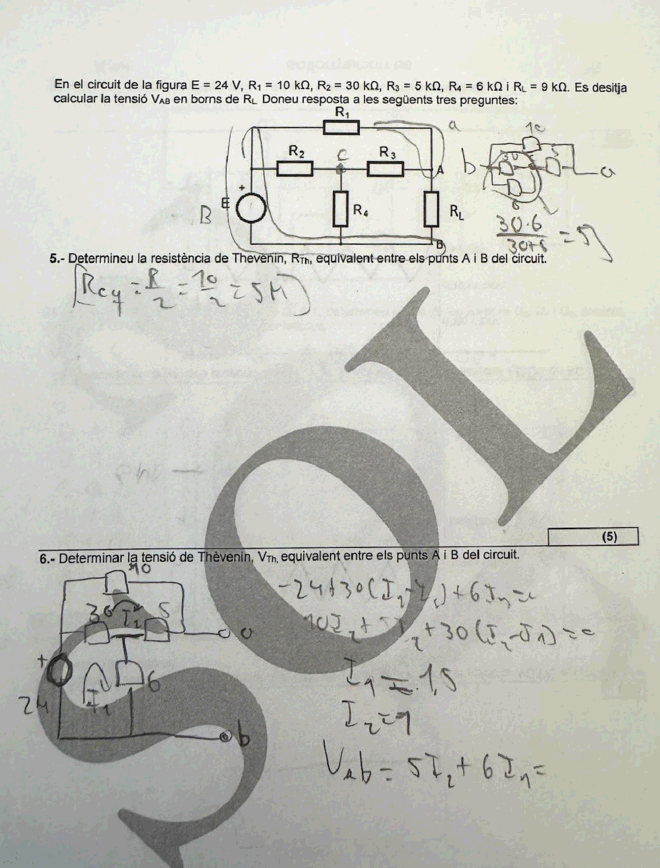 En el circuit de la figura E = 24 V, R₁ = 10 kΩ, R₂ = 30 kΩ, R₃ = 5 kΩ, R₄ = 6 kΩ i R_L = 9 kΩ. Es desitja
calcular la tensió V_AB en borns de R_L. Doneu resposta a les següents tres preguntes:
R₁
a
10
R₂
C
R₃
A
b
30
5
a
6
B
E
+
R₄
R_L
B
30·6
30+6
= 5
5.- Determineu la resistència de Thevenin, R_Th, equivalent entre els punts A i B del circuit.
Req = R/2 = 10/2 = 5
SOL
(5)
6.- Determinar la tensió de Thèvenin, V_Th, equivalent entre els punts A i B del circuit.
10
-24+30(I₁-I₂)+6I₁=0
30
I₂
5
a
10I₂+5I₂+30(I₂-I₁)=0
+
24
I₁
6
I₁ = 1,5
I₂=1
b
Vab = 5I₂ + 6I₁ =